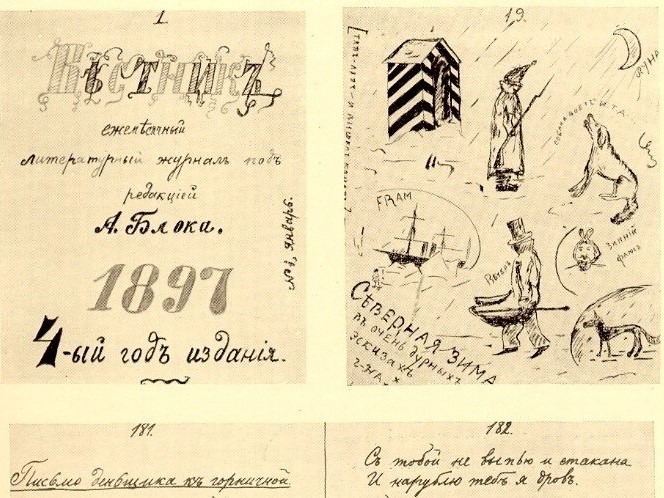 1.
Вѣстникъ
ежемѣсячный
литературный журналъ подъ
редакціей
А. Блока.
№1, январь.
1897
4-ый годъ изданія.
19.
ЛУНА
FRAM
ЗИМНІЙ
СѢВЕРНАЯ ЗИМА
въ очень дурныхъ
эскизахъ
г-на х
181.
Письмо деньщика къ горничной
182.
Съ тобой не выпью и стакана
И нарублю тебѣ я дровъ.